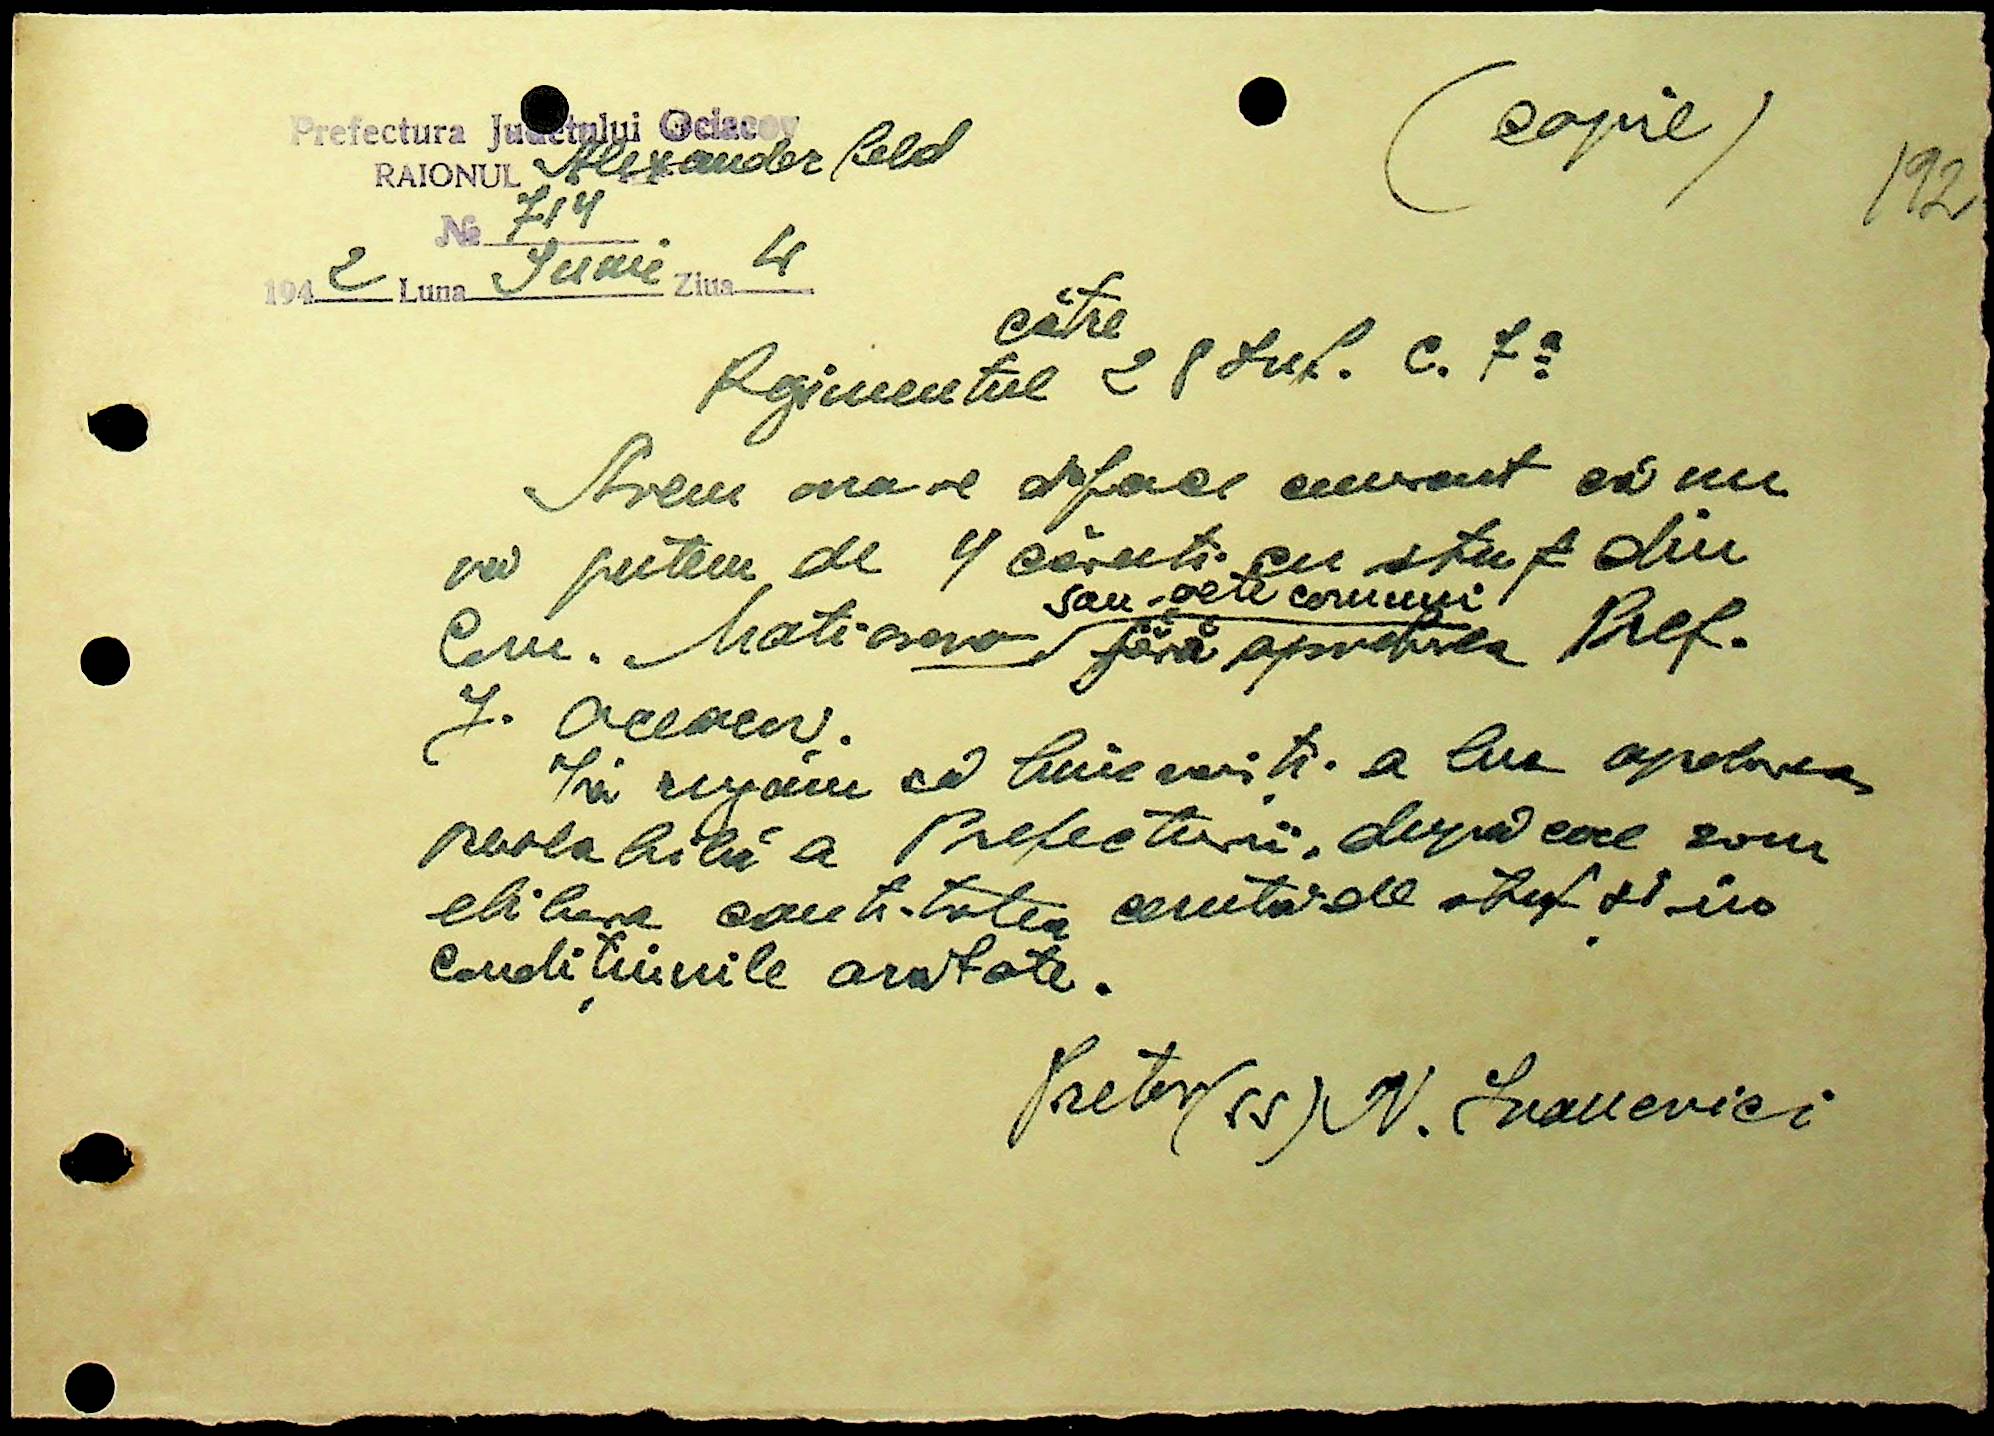 Prefectura Județului Ociacov
RAIONUL Alexander feld
№ 714
1942 Luna Iunie Ziua 4
(copie)
192
către
Regimentul 28 Inf. C. 7ª
Avem onoare a face cunoscut că nu
vă putem da 4 căruți cu stuf din
Com. Matiasovo sau alte comuni fără aprobarea Pref.
J. Oceacov.
Vă rugăm să binevoiți a lua aprobarea
prealabilă a Prefecturii, după care vom
elibera cantitatea cerută de stuf și în
condițiunile arătate.
Pretor (ss) N. Ivanovici